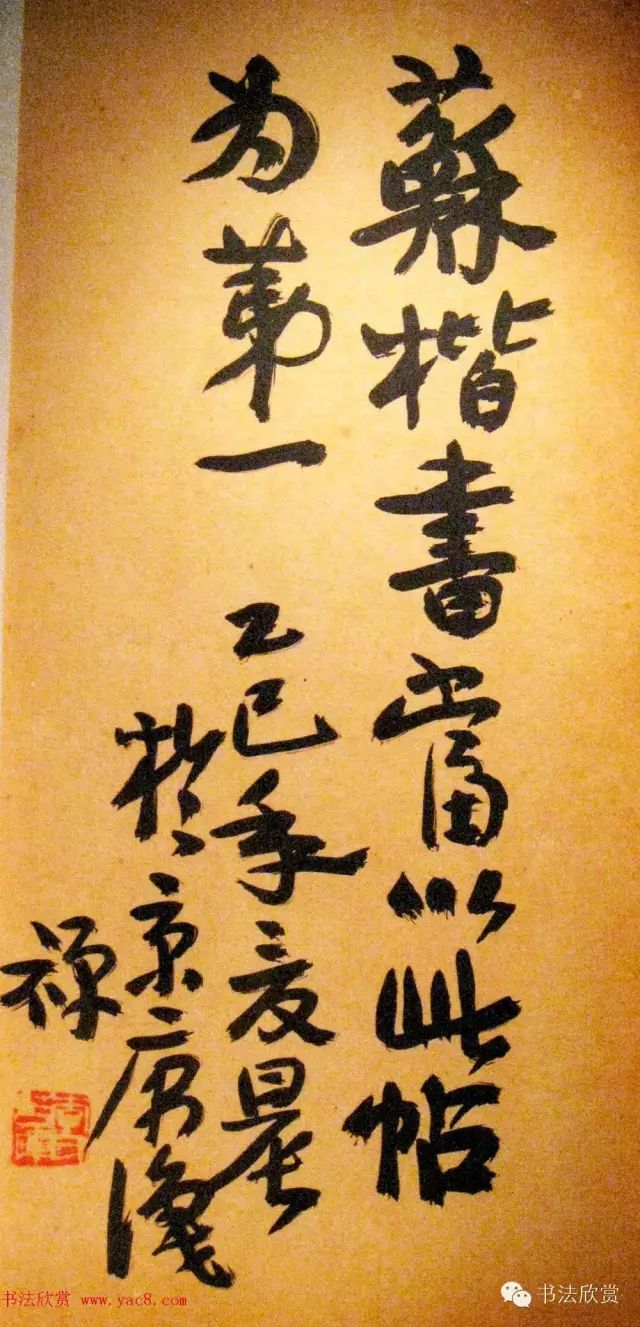 蘇楷書當以此帖
为苐一
乙巳年夏晨
於京
禅
书法欣赏 www.yac8.com
书法欣赏